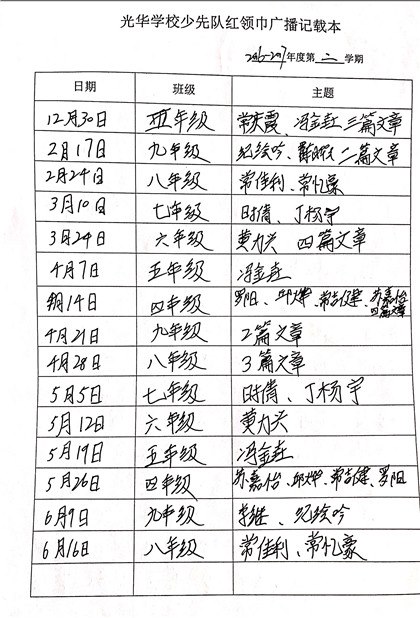 光华学校少先队红领巾广播记载本
2016-2017年度第二学期
日期 班级 主题
12月30日 五年级 常庆震、冯金垚 三篇文章
2月17日 九年级 纪绘吟、 二篇文章
2月24日 八年级 常佳利、常忆豪
3月10日 七年级 时倩、丁杨宇
3月24日 六年级 黄力兴 四篇文章
4月7日 五年级 冯金垚
4月14日 四年级 罗阳、邱烨、常吉健、苏嘉怡 四篇文章
4月21日 九年级 2篇文章
4月28日 八年级 3篇文章
5月5日 七年级 时倩、丁杨宇
5月12日 六年级 黄力兴
5月19日 五年级 冯金垚
5月26日 四年级 苏嘉怡、邱烨、常吉健、罗阳
6月9日 九年级 李继、纪绘吟
6月16日 八年级 常佳利、常忆豪